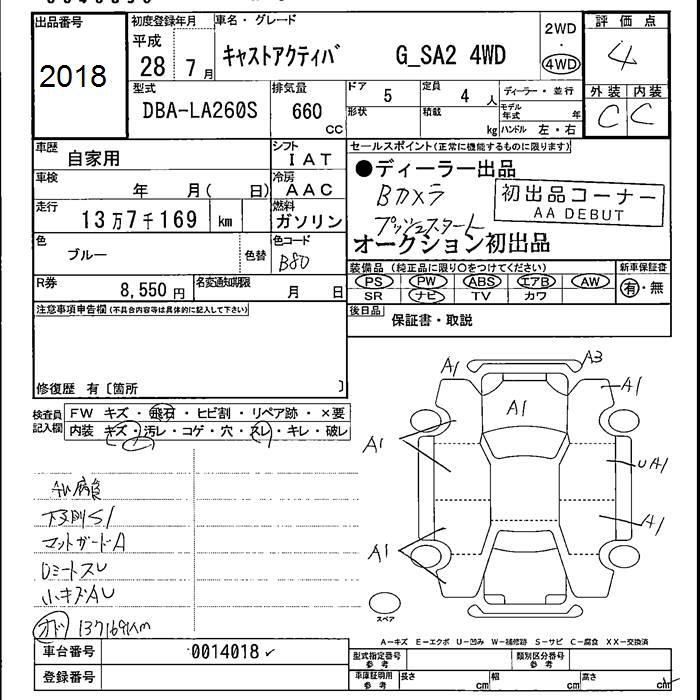 出品番号 初度登録年月 車名・グレード 2WD ・ 4WD 評価点
2018 平成 28 7月 キャストアクティバ G_SA2 4WD 4
型式 排気量 ドア 5 定員 4人 ディーラー・並行 外装 内装
DBA-LA260S 660 CC 形状 積載 kg モデル年式 年 ハンドル 左・右 C C
車歴 自家用 シフト IAT セールスポイント(正常に機能するものに限ります)
車検 年 月( 日) 冷房 AAC ●ディーラー出品
走行 13万7千169 km 燃料 ガソリン Bカメラ 初出品コーナー
AA DEBUT
プッシュスタート
色 ブルー 色替 色コード B80 オークション初出品
R券 8,550円 名変通知期限 月 日 装備品(純正品に限り○をつけてください) 新車保証書
PS PW ABS エアB AW 有・無
SR ナビ TV カワ
注意事項申告欄(不具合内容等は具体的に記入して下さい) 後日品 保証書・取説
修復歴 有〔箇所 〕
検査員記入欄 FW キズ・飛石・ヒビ割・リペア跡・×要
内装 キズ・汚レ・コゲ・穴・スレ・キレ・破レ
A1 A3
A1 A1
A1 UA1
A1
A1
AW腐食
下廻りS1
マットガードA
Dミラースレ
小キズAU
オド 137169km
スペア
A-キズ E-エクボ U-凹み W-補修跡 S-サビ C-腐食 XX-交換済
車台番号 0014018 型式指定番号 参考 類別区分番号 参考
登録番号 車庫証明用 参考 長さ cm 幅 cm 高さ cm